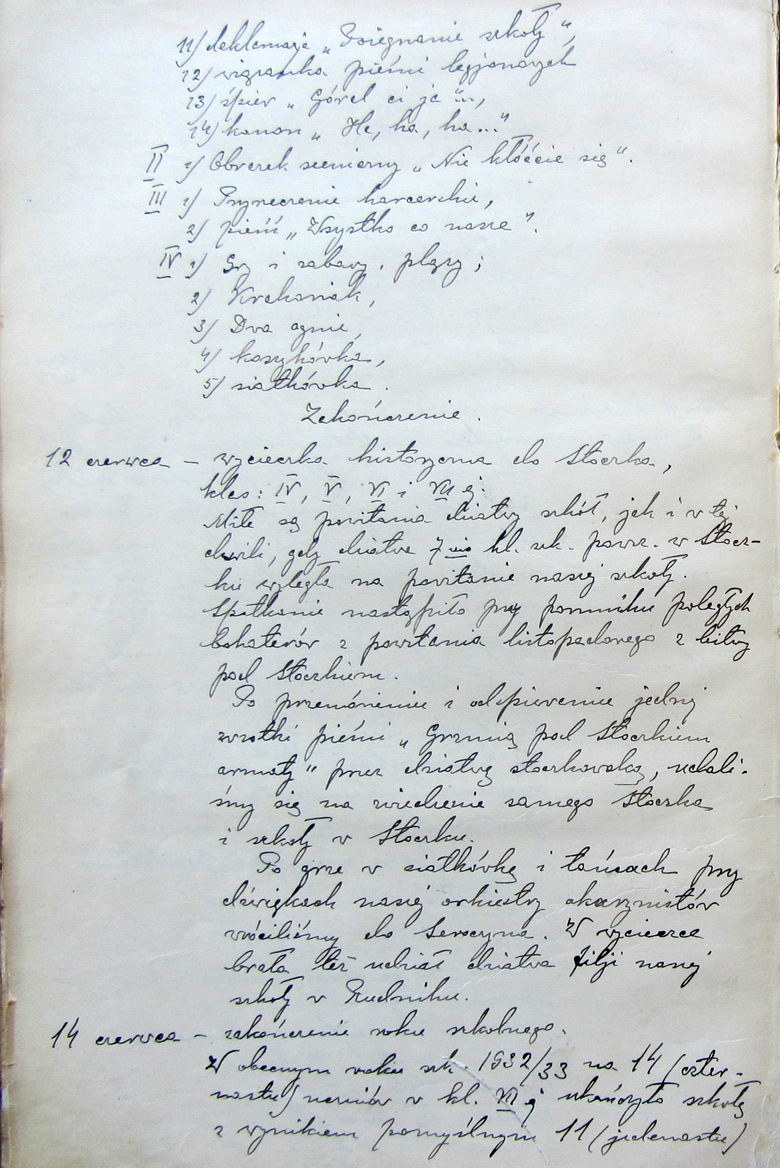 11) deklamacja „Pożegnanie szkoły”,
12) wiązanka pieśni legjonowych
13) śpiew „Góral ci ja”...,
14) kanon „He, ha, ha...”
II 1) Obrazek sceniczny „Nie kłóćcie się”.
III 1) Przyrzeczenie harcerskie,
2) pieśń „Wszystko co nasze”.
IV 1) Gry i zabawy, pląsy;
2) Krakowiak,
3) Dwa ognie,
4) koszykówka,
5) siatkówka.
Zakończenie.
12 czerwca – wycieczka historyczna do Stoczka,
klas: IV, V, VI i VII ej.
Miłe są powitania dziatwy szkół, jak i w tej
chwili, gdy dziatwa 7 mio kl. szk. powsz. w Stocz-
ku wyległa na powitanie naszej szkoły.
Spotkanie nastąpiło przy pomniku poległych
bohaterów z powstania listopadowego z bitwy
pod Stoczkiem.
Po przemówieniu i odśpiewaniu jednej
zwrotki pieśni „Grzmią pod Stoczkiem
armaty” przez dziatwę stoczkowską, udali-
śmy się na zwiedzenie samego Stoczka
i szkoły w Stoczku.
Po grze w siatkówkę i tańcach przy
dźwiękach naszej orkiestry okarynistów
wróciliśmy do Seroczyna. W wycieczce
brała też udział dziatwa filji naszej
szkoły w Rudniku.
14 czerwca – zakończenie roku szkolnego.
W obecnym roku szk. 1932/33 na 14 (czter-
nastu) uczniów w kl. VII ej ukończyło szkołę
z wynikiem pomyślnym 11 (jedenastu)